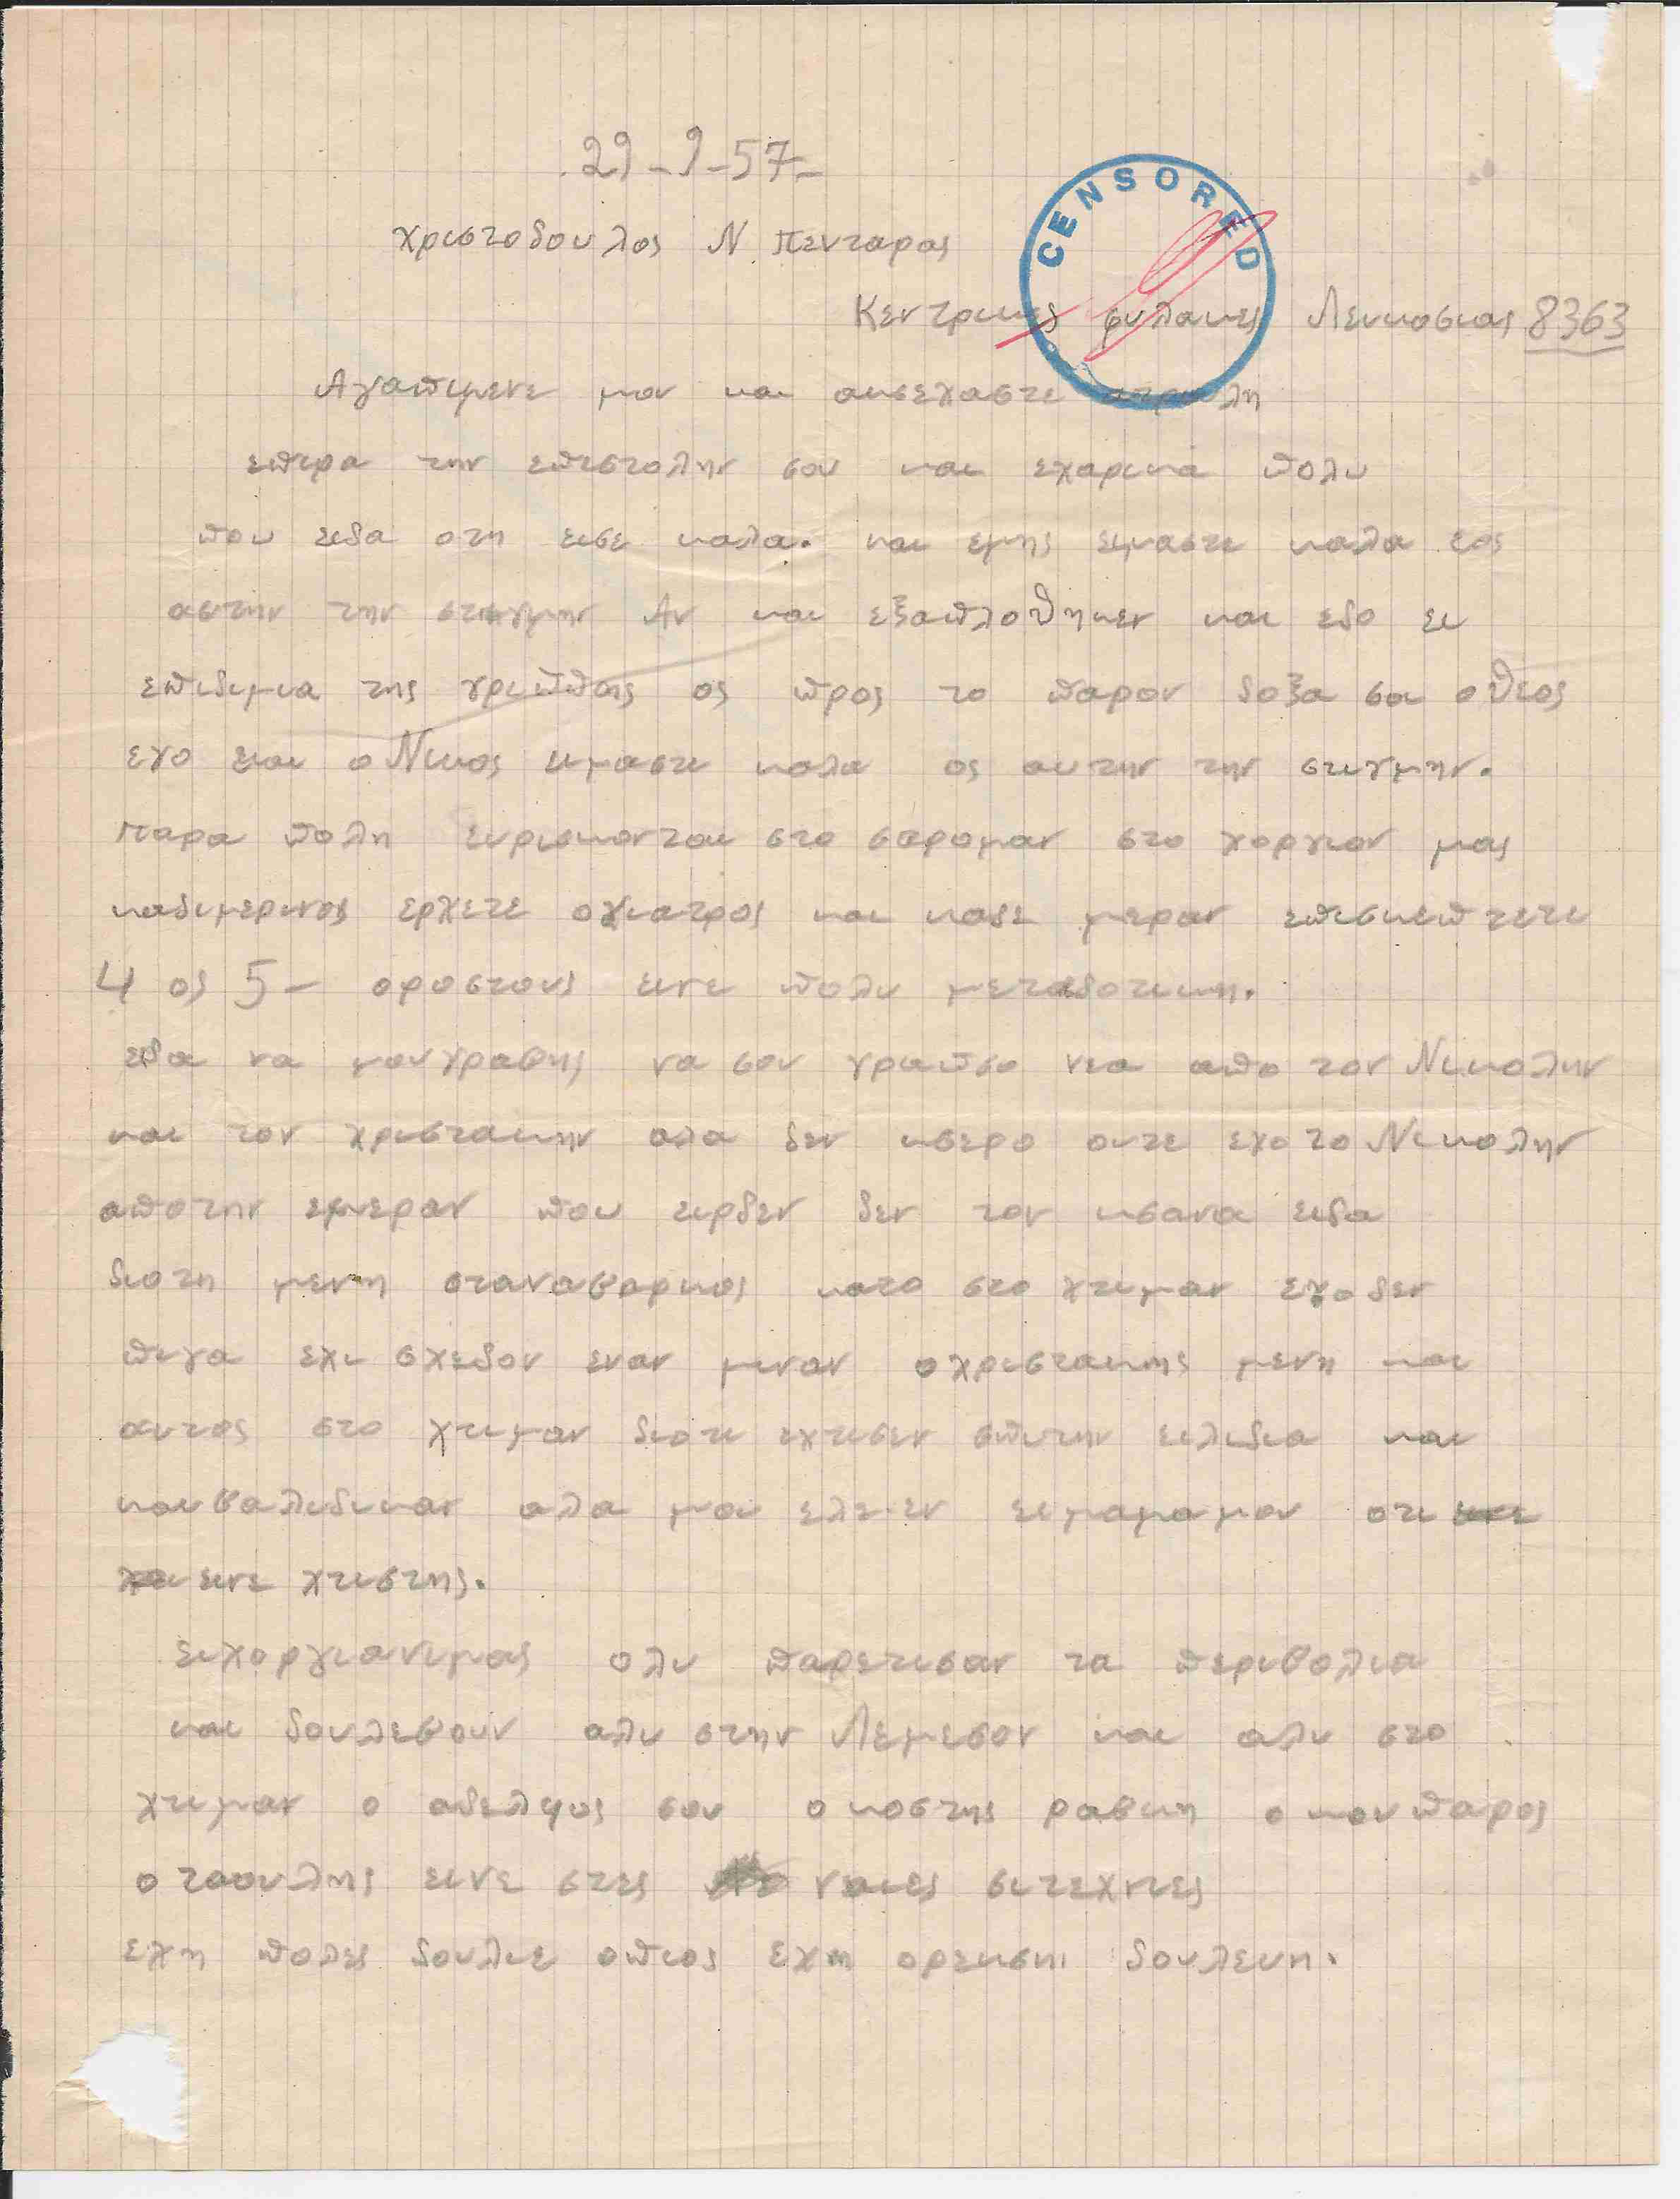 29-9-57-
CENSORED
χριστοδουλος Ν πενταρας
Κεντρικες φυλακες Λευκοσιας 8363
Αγαπιμενε μου και ακσεχαστε
επιρα την επιστολην σου και εχαρικα πολυ
που ειδα οτη εισε καλα. και εμης ειμαστε καλα εος
αυτην την στιγμην Αν και εξαπλοθηκεν και εδο ει
επιδιμια της γριππης ος προς το παρον δοξα σοι οθεος
εγο και ο Νικος ειμαστε καλα ος αυτην την στιγμην.
παρα πολη ευρισκονται στο στρομαν στο χοργιον μας
καθιμερινος ερχετε ογιατρος και καθε μεραν επισκεπτετε
4 ος 5- αροστους εινε πολυ μεταδοτικη.
ειδα να μουγραφης να σου γραπσο νεα απο τον Νικολην
και τον χριστακην αλα δεν κσερο ουτε εγο το Νικολην
αποτην εμεραν που ειρθεν δεν τον κσανα ειδα
διοτη μενη σταναβαρκος κατο στο χτιμαν εγο δεν
πιγα εχι σχεδον εναν μιναν οχριστακης μενη και
αυτος στο χτιμαν διοτι εχτισεν σπιτην ειλιδια και
κουβαλιθικαν αλα μου ελεεν ειμαμαμου οτι
εινε χτιστης.
ειχοργιανιμας ολι παρετισαν τα περιβολια
και δουλεβουν αλι στην Λεμεσον και αλι στο
χτιμαν ο αδελφος σου ο κοστης ραβκη ο κουπαρος
ο ταουλης εινε στες νεαιες σιτεχνιες
εχη πολες δουλιε οπιος εχη ορεκση δουλευη.